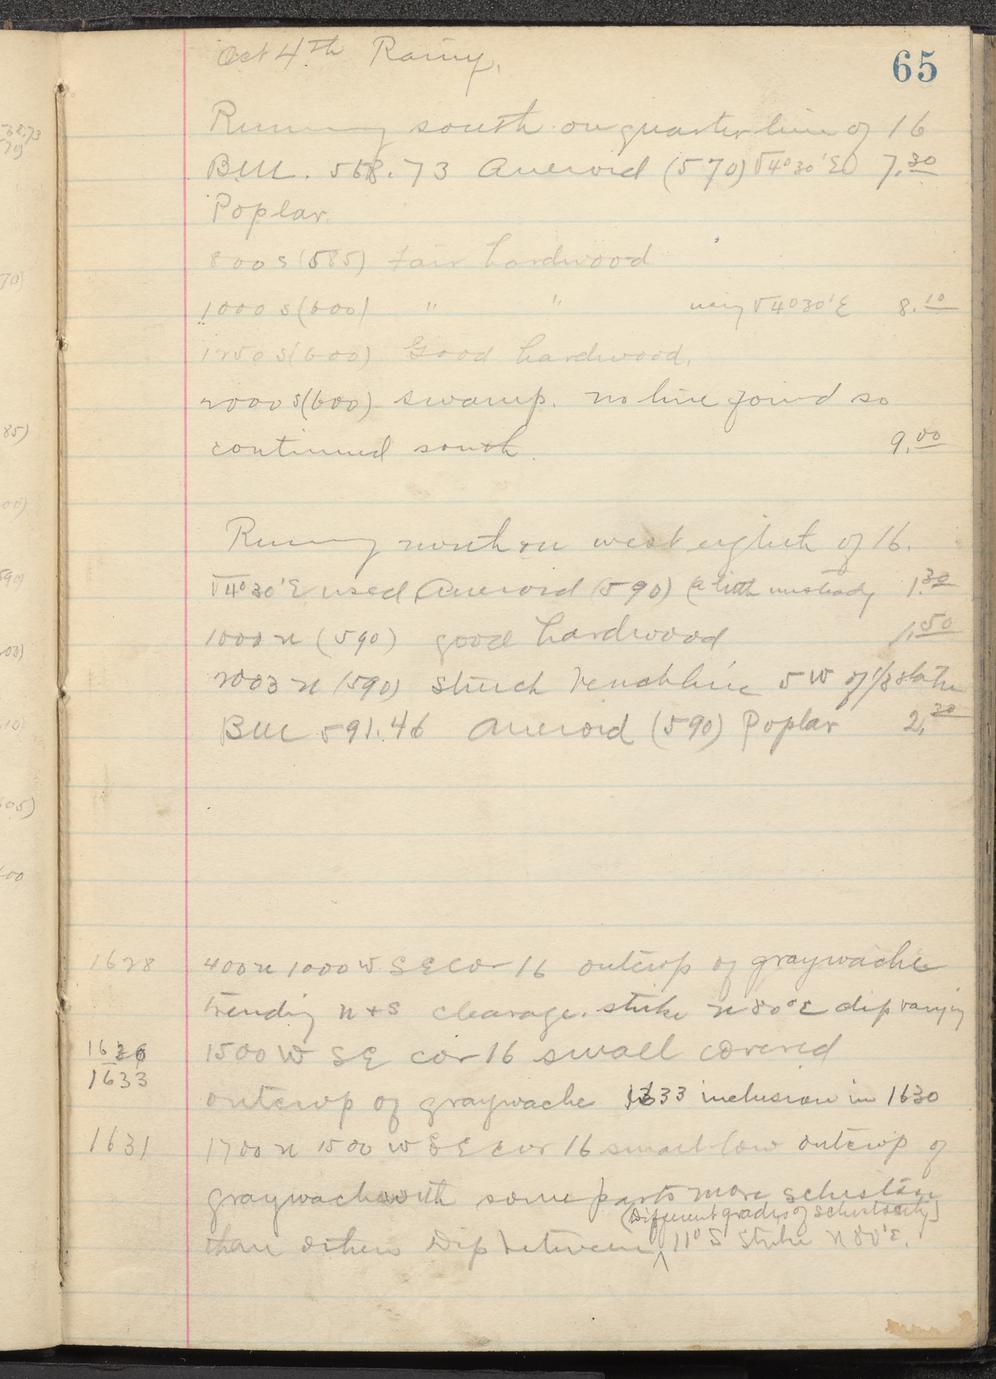 Oct 4th Rainy.
65
Running south on quarter line of 16
B.M. 568.73 Aneroid (570) V4°30'E 7.30
Poplar.
800 S (585) fair hardwood
1000 S (600) " " using V4°30'E 8.10
1250 S (600) Good hardwood.
2000 S (600) swamp. no line found so
continued south. 9.00
Running north on west eighth of 16.
V4°30'E used Aneroid (590) a little unsteady 1.30
1000 N (590) good hardwood 1.50
2003 N (590) struck bench line 5 W of 1/8
BM 591.46 Aneroid (590) Poplar 2.20
1628 400 N 1000 W SE cor 16 outcrop of graywacke
trending N + S cleavage. strike N 80° E dip varying
1630 1500 W SE cor 16 small covered
1633
outcrop of graywacke 1633 inclusion in 1630
1631 1700 N 1500 W SE cor 16 small low outcrop of
graywacke with some parts more schistose
(Different grades of schistosity)
than others Dip between 11° S Strike N 80° E.